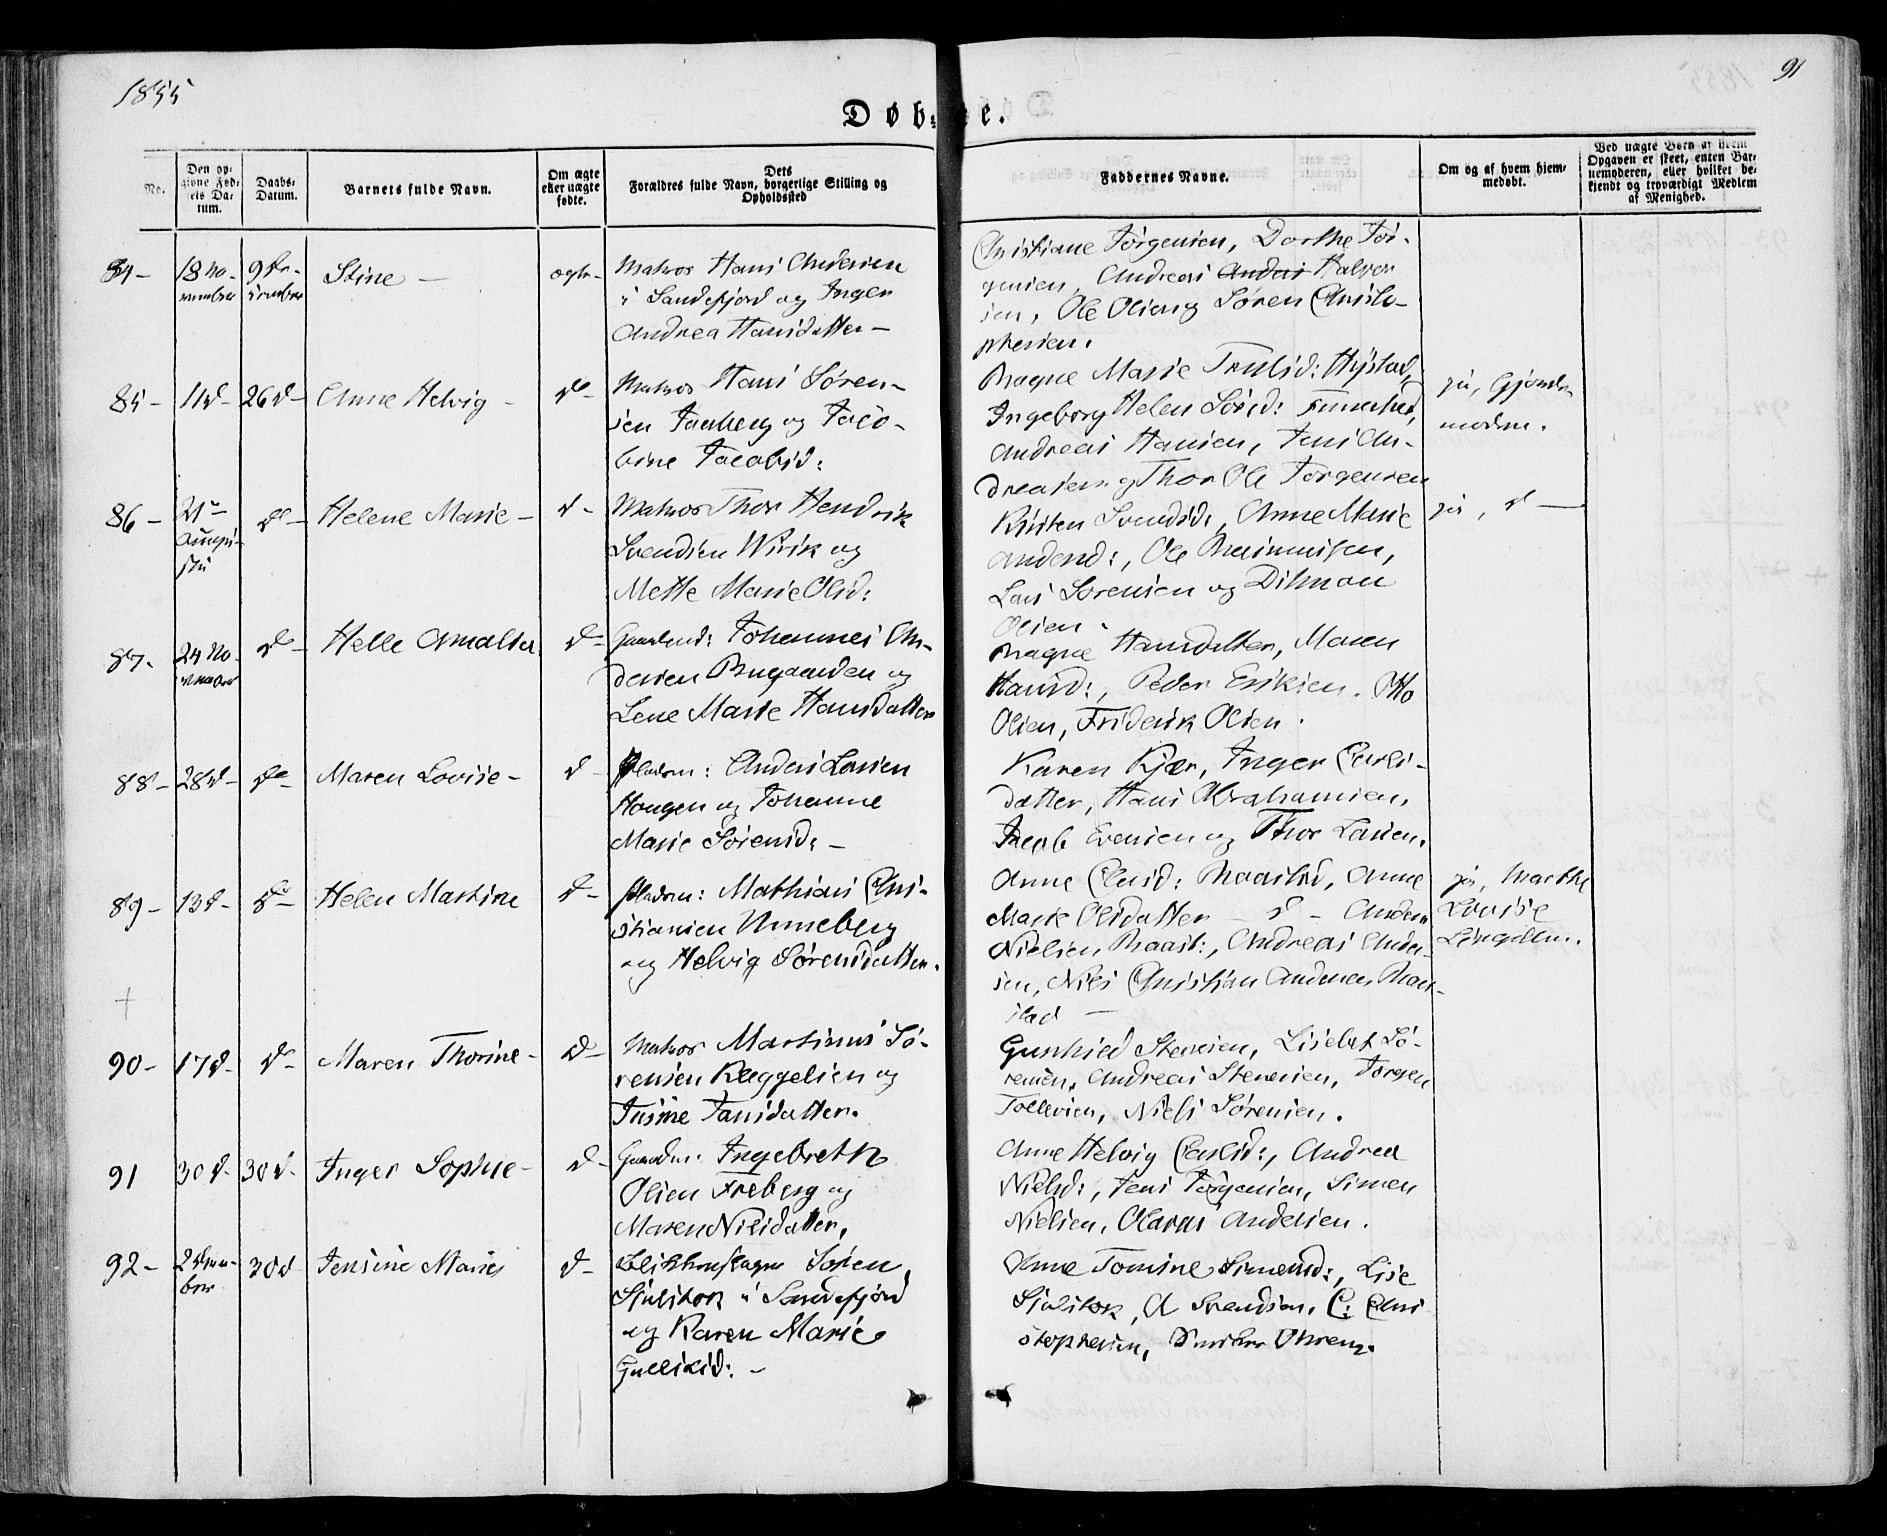 1855
91
Døbte.
No.
Den op-
givne Fød-
sels Da-
tum.
Daabs-
Datum.
Barnets fulde Navn.
Om ægte
eller uægte
fødte.
Dets
Forældres fulde Navn, borgerlige Stilling og
Opholdssted
Faddernes Navne.
Om og af hvem hjem-
medøbt.
Ved uægte Børn af hvem
Opgaven er skeet, enten Bar-
nemoderen, eller hvilket be-
kjendt og troværdigt Medlem
af Menighed.
84-
18 No-
vember
9 De-
cember
Stine -
ægte-
Matros Hans Andersen
i Sandefjord og Inger
Andrea Hansdatter -
Christiane Jørgensen, Dorthe Jør-
gensen, Andreas Anders Halvor
sen, Ole Olsen og Søren Christo-
phersen.
85-
11 d-
26 d-
Anne Helvig -
do-
Matros Hans Søren-
sen Faaberg og Jaco-
bine Jacobsd:
Ragne Marie Trulsd: Hystad,
Ingeborg Helen Sørsd:
Andreas Hansen, Jens An-
dreasen og Thor Ole Jørgensen
ja, Gjorde-
moderen.
86-
21
Augu-
sti
do-
Helene Marie -
d-
Matros Thor Hendrik
Svendsen Wirik og
Mette Marie Olsd:
Kirsten Svendsd:, Anne Marie
Andersd:, Ole Rasmussen,
Lars Sørensen og Ditman
Olsen.
ja, d -
87-
24 No-
vember
do-
Helle Amalia
d-
Gaardmd: Johannes An-
dersen Bugaarden og
Lene Marie Hansdatter
Ragne Hansdatter, Maren
Hansd:, Peder Eriksen, Otto
Olsen, Friderik Olsen.
88-
28 d-
do-
Maren Lovise -
d-
Pladsm: Anders Larsen
Haugen og Johanne
Marie Sørensd: -
Karen Kjær, Inger Carls-
datter, Hans Abrahamsen,
Jacob Evensen og Thor Larsen.
89-
13 d-
do-
Helen Martine
d-
Pladsm: Mathias Chri-
stiansen Unneberg
og Helvig Sørensdatter.
Anne Clausd: Raastad, Anne
Marie Olsdatter - d - Anders
Nielsen Raast:, Andreas Ander-
sen, Nils Christian Andersen Raa-
stad -
ja, Marthe
Lovise
90-
17 d-
do-
Maren Thorine -
d-
Matros Martinus Sø-
rensen Kleggelien og
Jusine Jansdatter.
Gunhild Stensen, Lisebet Sø-
rensen, Andreas Stenersen, Jørgen
Tollevsen, Niels Sørensen.
91
30 d-
30 d-
Inger Sophie -
d-
Gaardm. Ingebreth
Olsen Freberg og
Maren Nilsdatter,
Anne Helvig Carlsd:, Andrea
Nielsd:, Jens Jørgensen, Simen
Nielsen, Olaves Andersen.
92-
2 Decem-
ber
30 d-
Jensine Marie
d-
Blikkenslager Søren
i Sandefjord
og Karen Marie
Gulliksd: -
Anne Tomine Simensd:, Lise
A Svendsen, C: Chri
stophersen,